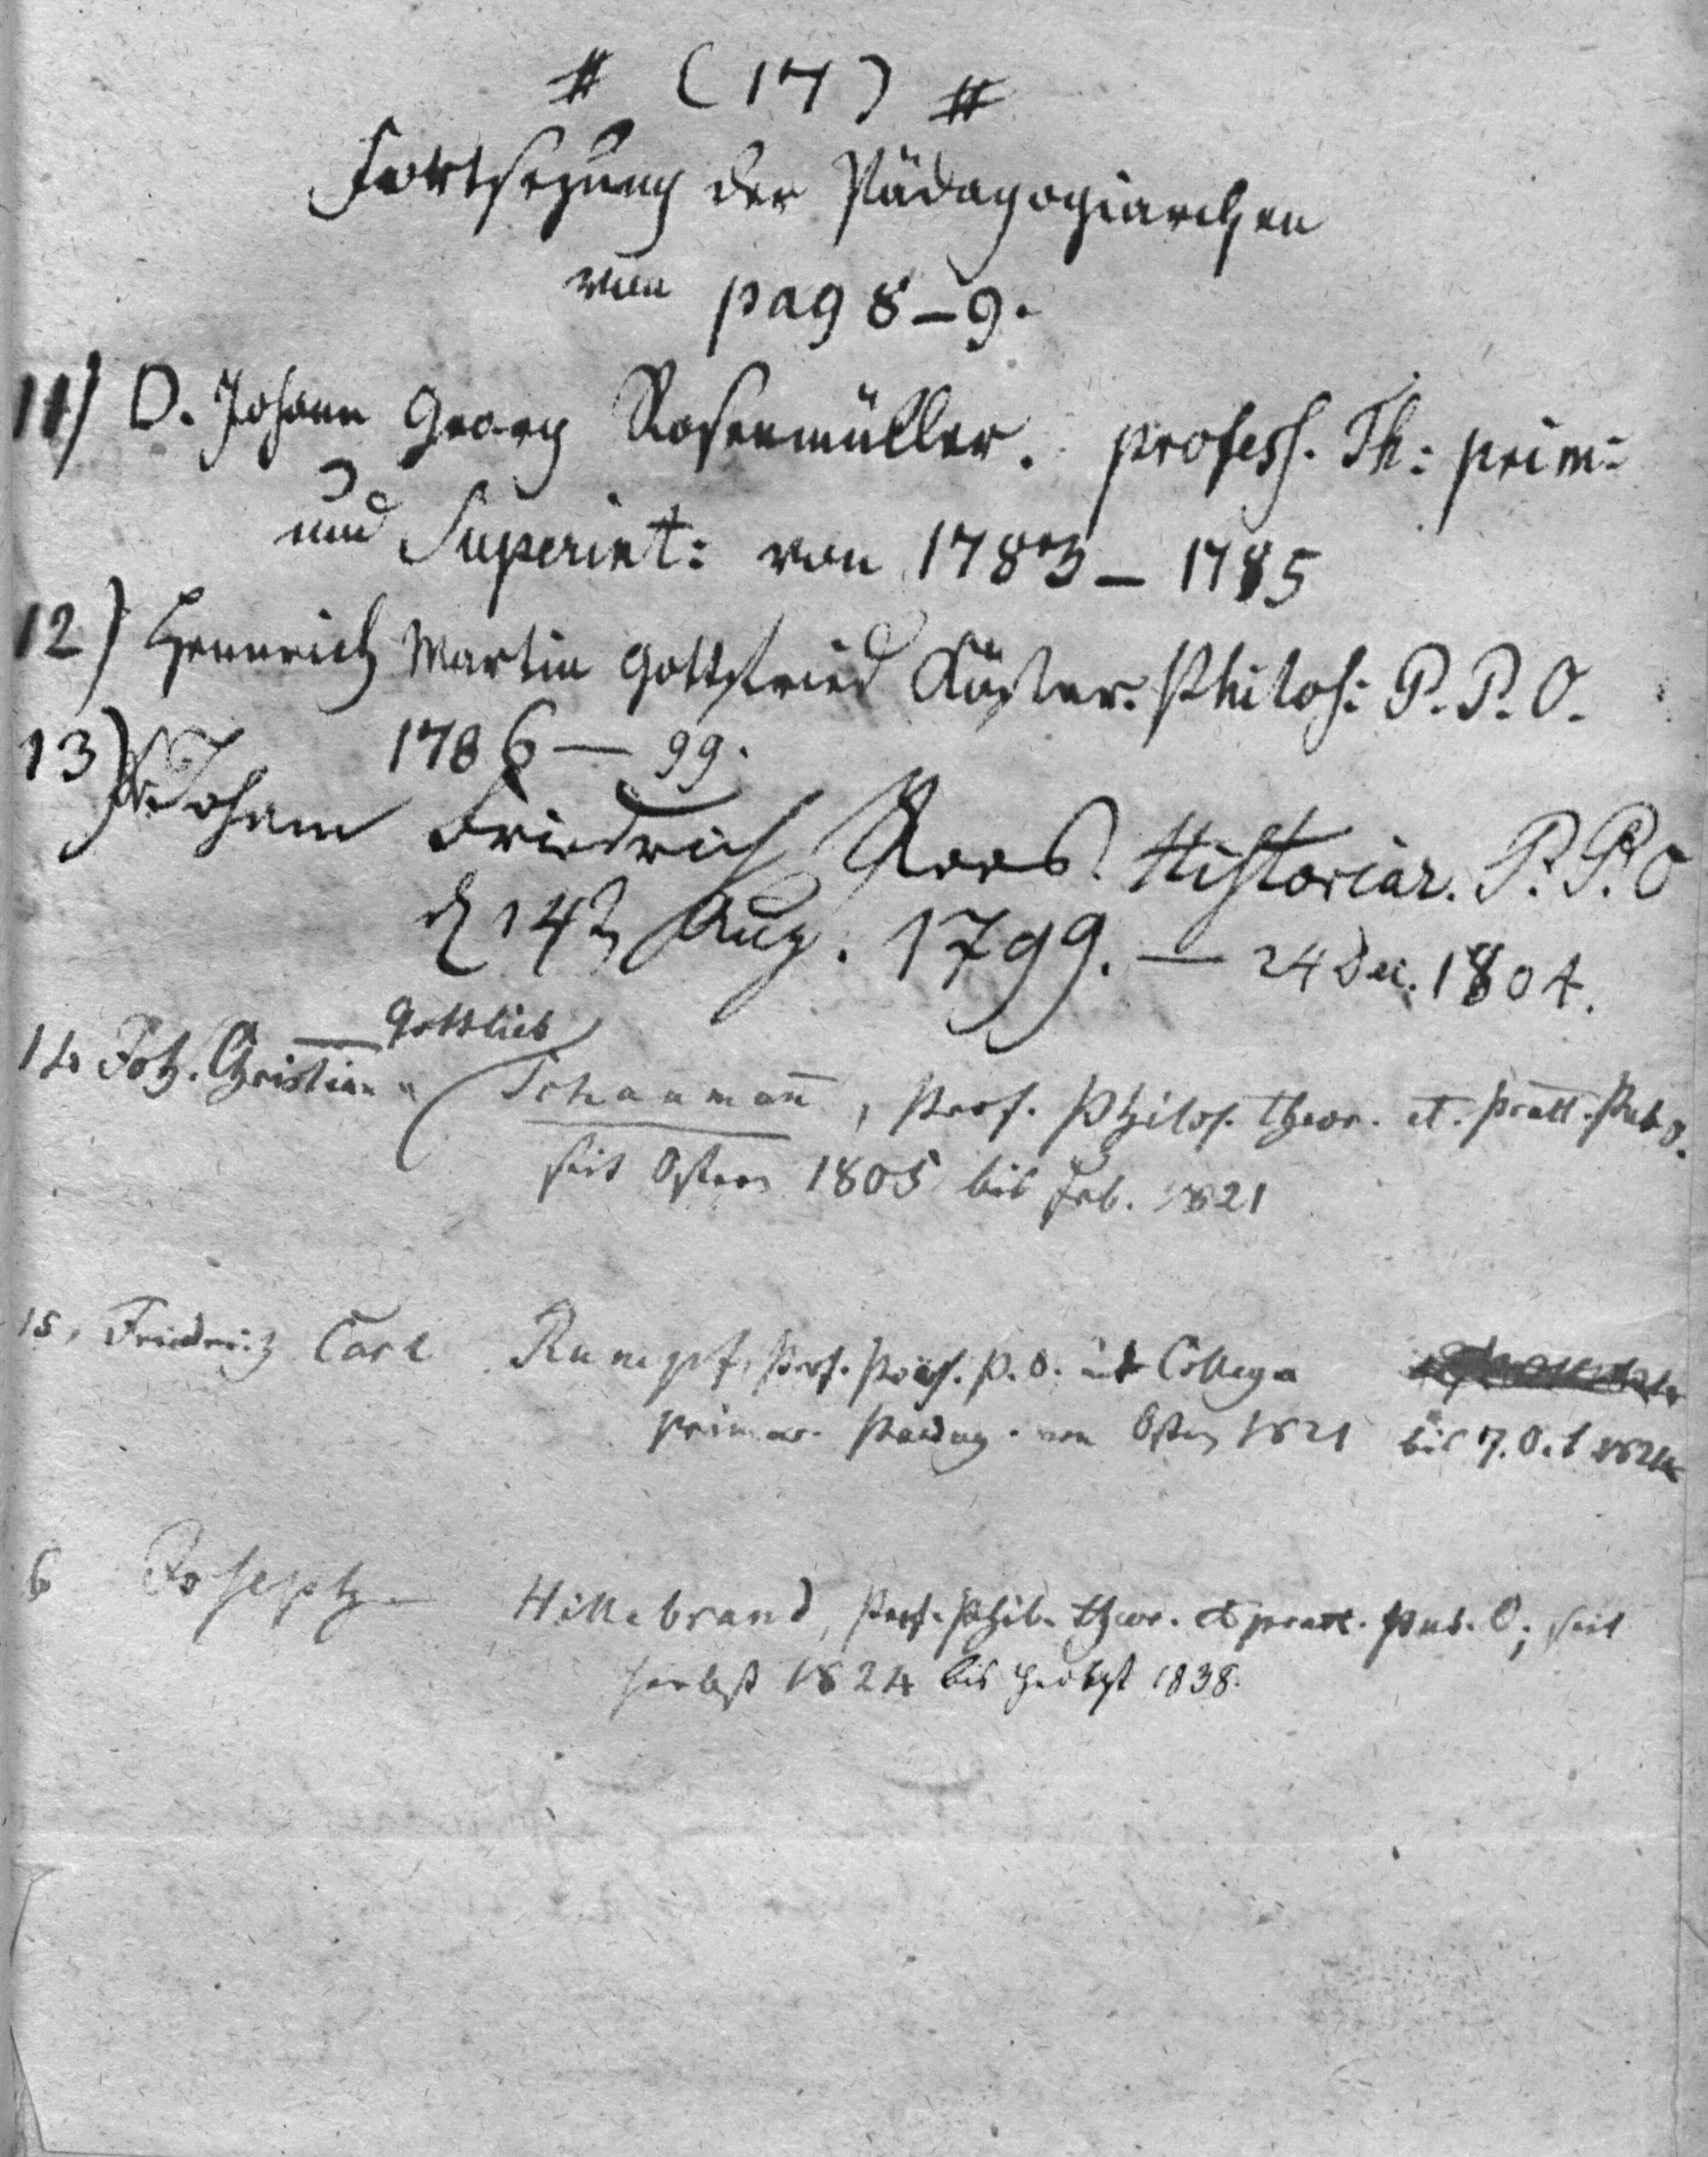 # (17) #
Fortsezung der Pädagogiarchen
von pag 8–9.
11) D. Johann Georg Rosenmüller. profess. Th: prim:
und Superint: von 1783 – 1785
12) Hennrich Martin Gottfried Köster. Philos: P. P. O.
1786 — 99.
13) Johann Friedrich Roos. Historiar. P. P. O
d 14t Aug. 1799. — 24 Dec. 1804.
Gottlieb
14. Joh. Christian Schaumañ, Prof. Philos. theor. et. pract. Pub O.
seit Ostern 1805 bis Feb. 1821
15, Friedrich Carl Rumpf, Prof. P. O. Collega
primar. Paedag. von Ostern 1821 bis 7. Oct 1824
6 Joseph Hillebrand, Prof. Phil. theor. et pract. Pub. O; seit
Herbst 1824 bis Herbst 1838.